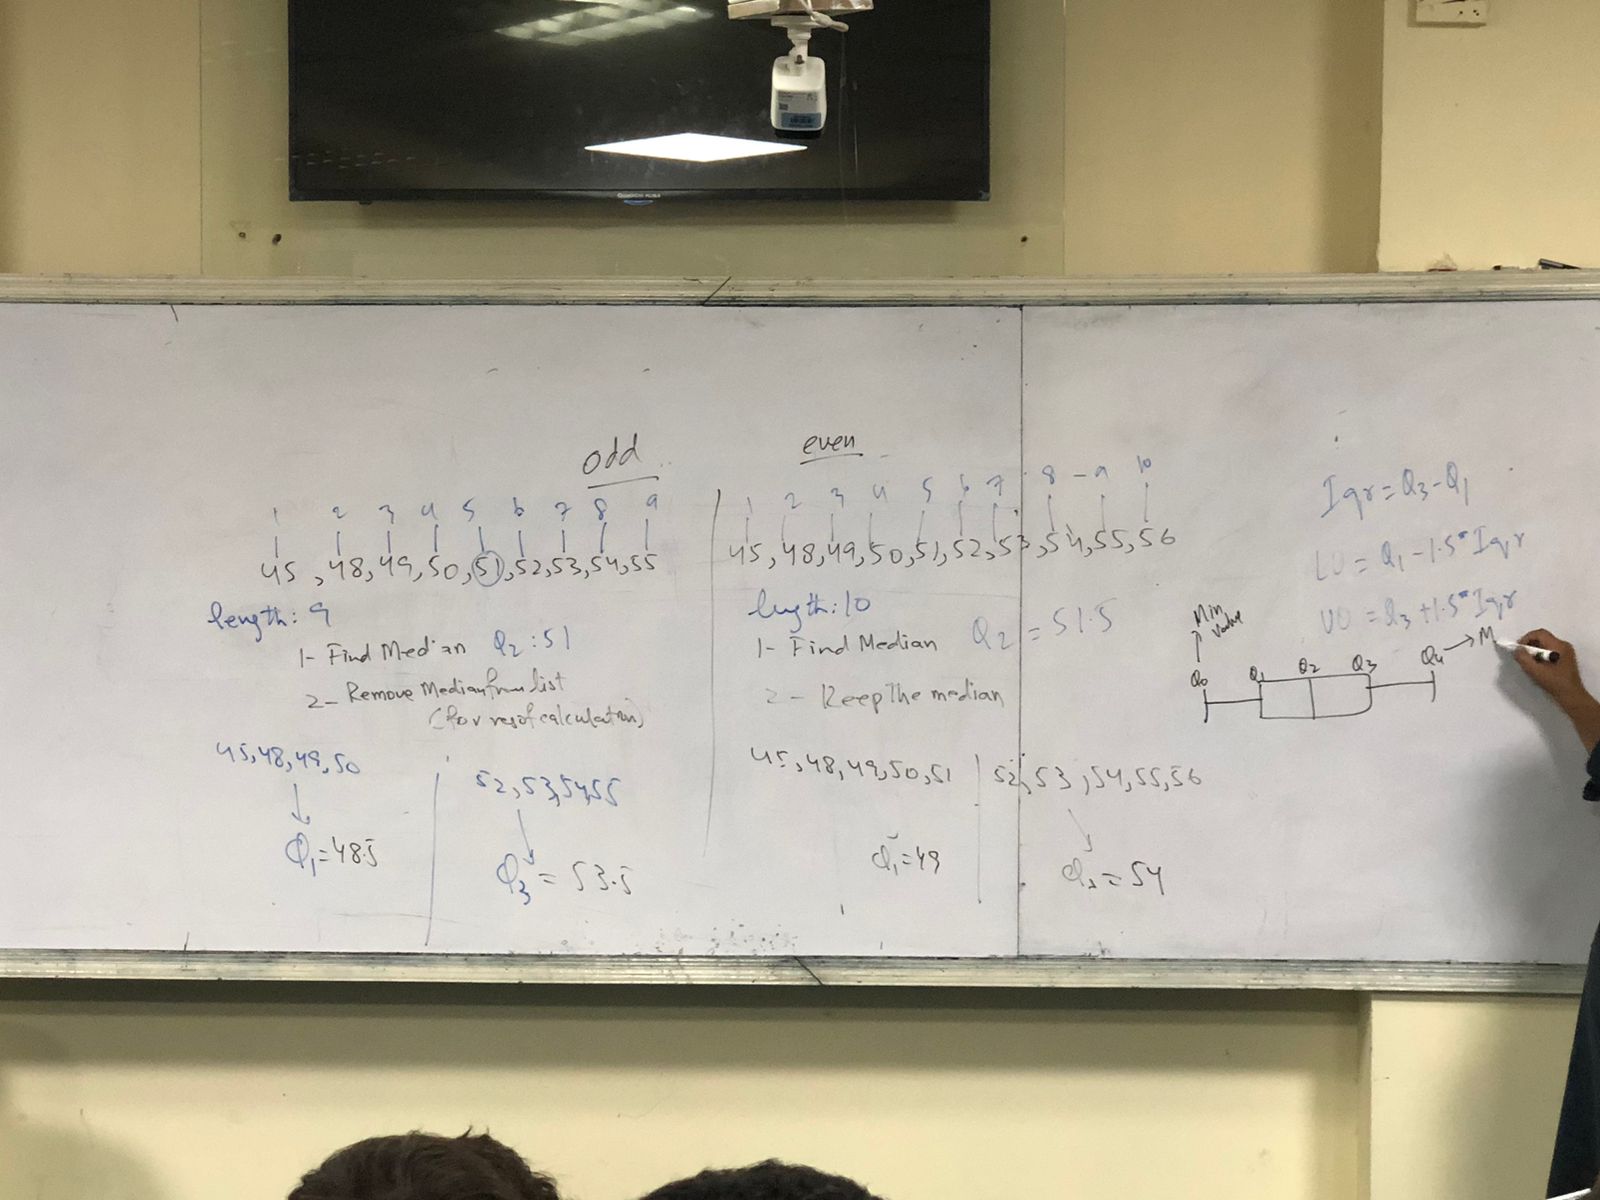 odd
1 2 3 4 5 6 7 8 9
45, 48, 49, 50, 51, 52, 53, 54, 55
length: 9
1- Find Median Q2: 51
2- Remove Median from list
(for rest of calculation)
45, 48, 49, 50
52, 53, 54, 55
Q1 = 48.5
Q3 = 53.5
even
1 2 3 4 5 6 7 8 - 9 10
45, 48, 49, 50, 51, 52, 53, 54, 55, 56
length: 10
1- Find Median Q2 = 51.5
2- Keep The median
45, 48, 49, 50, 51
52, 53, 54, 55, 56
Q1 = 49
= 54
Iqr = Q3 - Q1
LO = Q1 - 1.5* Iqr
UO = Q3 + 1.5* Iqr
Min
value
Q0 Q1 Q2 Q3 Q4 → M